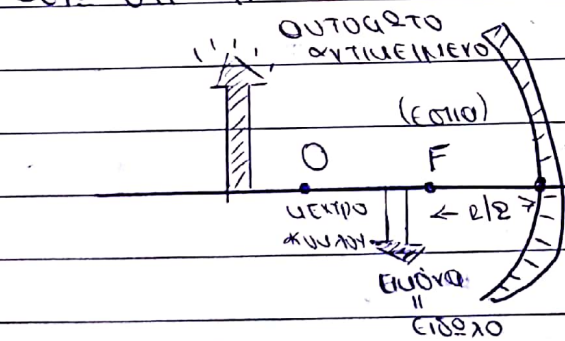 αυτόφωτο
αντικείμενο
(εστία)
O
F
κέντρο
κύκλου
← R/2 →
εικόνα
=
είδωλο